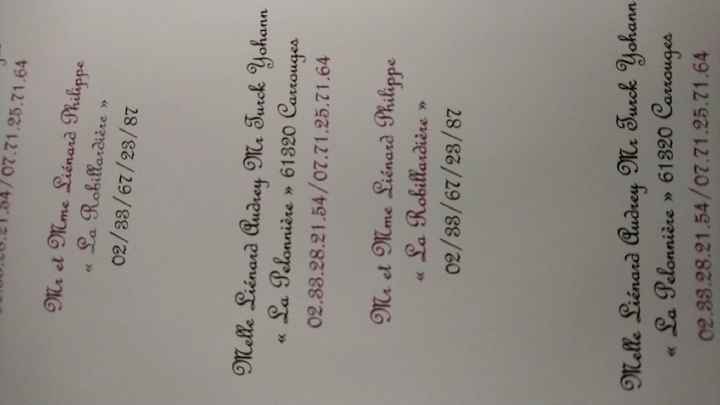 07.71.25.71.64
Mr et Mme Liénard Philippe
« La Robillardière »
02/33/67/23/87
Melle Liénard Audrey Mr Turck Yohann
« La Pelonnière » 61320 Carrouges
02.33.28.21.54/07.71.25.71.64
Mr et Mme Liénard Philippe
« La Robillardière »
02/33/67/23/87
Melle Liénard Audrey Mr Turck Yohann
« La Pelonnière » 61320 Carrouges
02.33.28.21.54/07.71.25.71.64